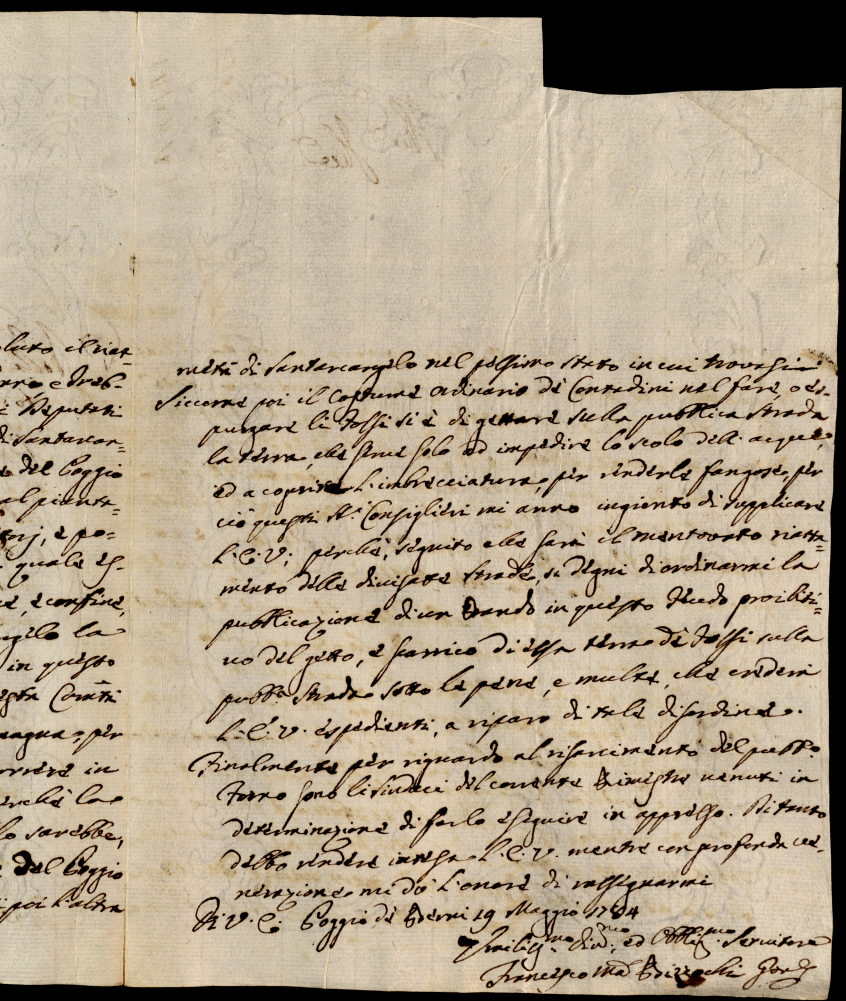 luto il riat=
rno e Treb=
i Deputati
di Santarcan=
e del Poggio
al pianta=
torj, e po=
quale es=
e, e confine,
ngelo la
in questo
esta Com̃tà
magna, per
orrere in
perchè la
lo sarebbe,
e del Poggio
poi l'altra
metà di Santarcangelo nel pessimo stato in cui trovasi
Siccome poi il costume ordinario de Contadini nel fare, o es=
purgare li Fossi si è di gettare sulla pubblica Strada
la terra, che serve solo ad impedire lo scolo dell'acque,
ed a coprire l'imbrecciatura, per renderle fangose, per
ciò questi Sig.i Consiglieri mi anno ingionto di supplicare
L.E.V., perchè, seguito che sarà il mentovato riatta=
mento delle divisate Strade, si degni di ordinarmi la
pubblicazione di un Bando in questo Feudo proibiti=
vo del getto, e scarrico di essa terra de Fossi sulla
pubb.a Strada sotto le pene, e multe, che crederà
L.E.V. espedienti, a riparo di tale disordine.
Finalmente per riguardo al risarcimento del pubb.o
Forno sono li Sindaci del corrente Bimestre venuti in
determinazione di farlo eseguire in appresso. Di tanto
debbo rendere intesa L.E.V. mentre con profonda ve=
nerazione mi dò l'onore di rassegnarmi
Di V.E. Poggio de Berni 19 Maggio 1784
Umiliss.mo Div.mo, ed Obblig.mo Servitore
Francesco M.a Brizzochi